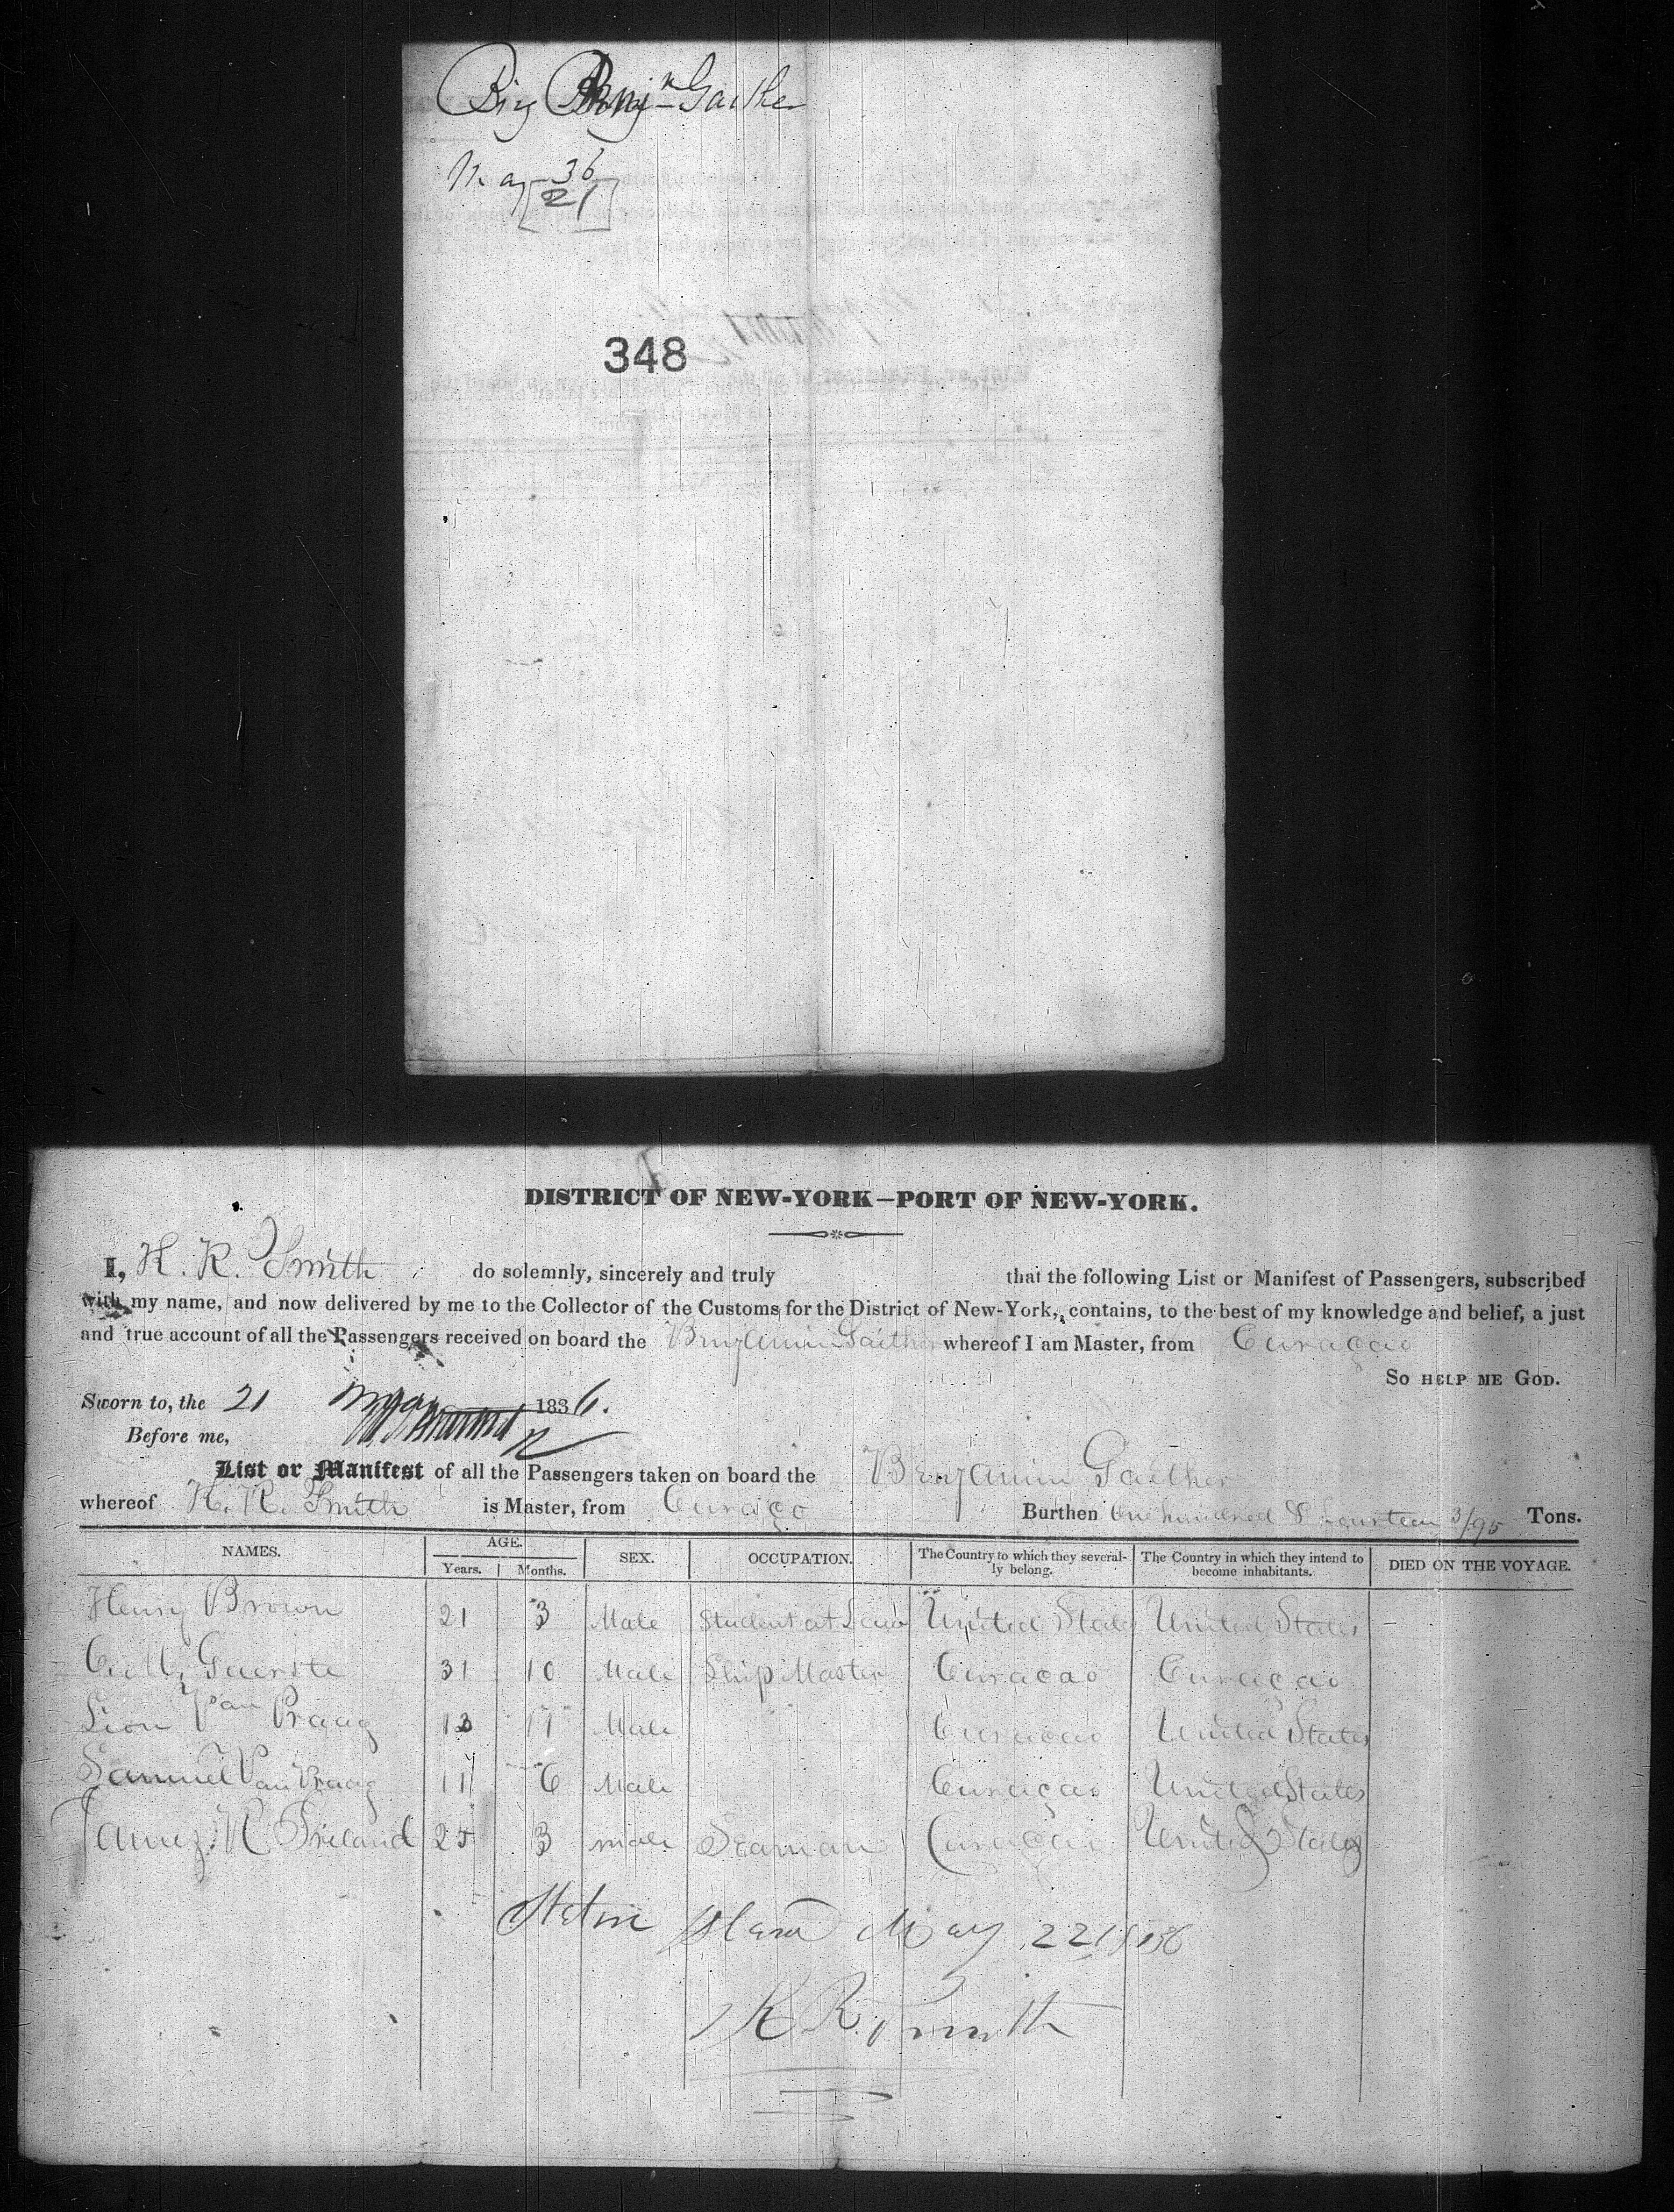 Brig Benjn Gaither
May 36
21
348
DISTRICT OF NEW-YORK—PORT OF NEW-YORK.
I, H. R. Smith do solemnly, sincerely and truly that the following List or Manifest of Passengers, subscribed
with my name, and now delivered by me to the Collector of the Customs for the District of New-York, contains, to the best of my knowledge and belief, a just
and true account of all the Passengers received on board the Benjamin Gaither whereof I am Master, from Curaçao
So HELP ME GOD.
Sworn to, the 21 May 1836.
Before me,
List or Manifest of all the Passengers taken on board the Benjamin Gaither
whereof H. R. Smith is Master, from Curaço Burthen One hundred & fourteen 3/95 Tons.
NAMES. AGE. SEX. OCCUPATION. The Country to which they severally belong. The Country in which they intend to become inhabitants. DIED ON THE VOYAGE.
Years. Months.
Henry Brown 21 3 Male Student at Law United States United States
31 10 Male Ship Master Curacao Curaçao
Lion Van Praag 13 11 Male Curacao United States
Samuel Van Praag 11 6 Male Curaçao United States
James R Ireland 25 3 male Seaman Curaçao United States
May 22 1836
H R Smith